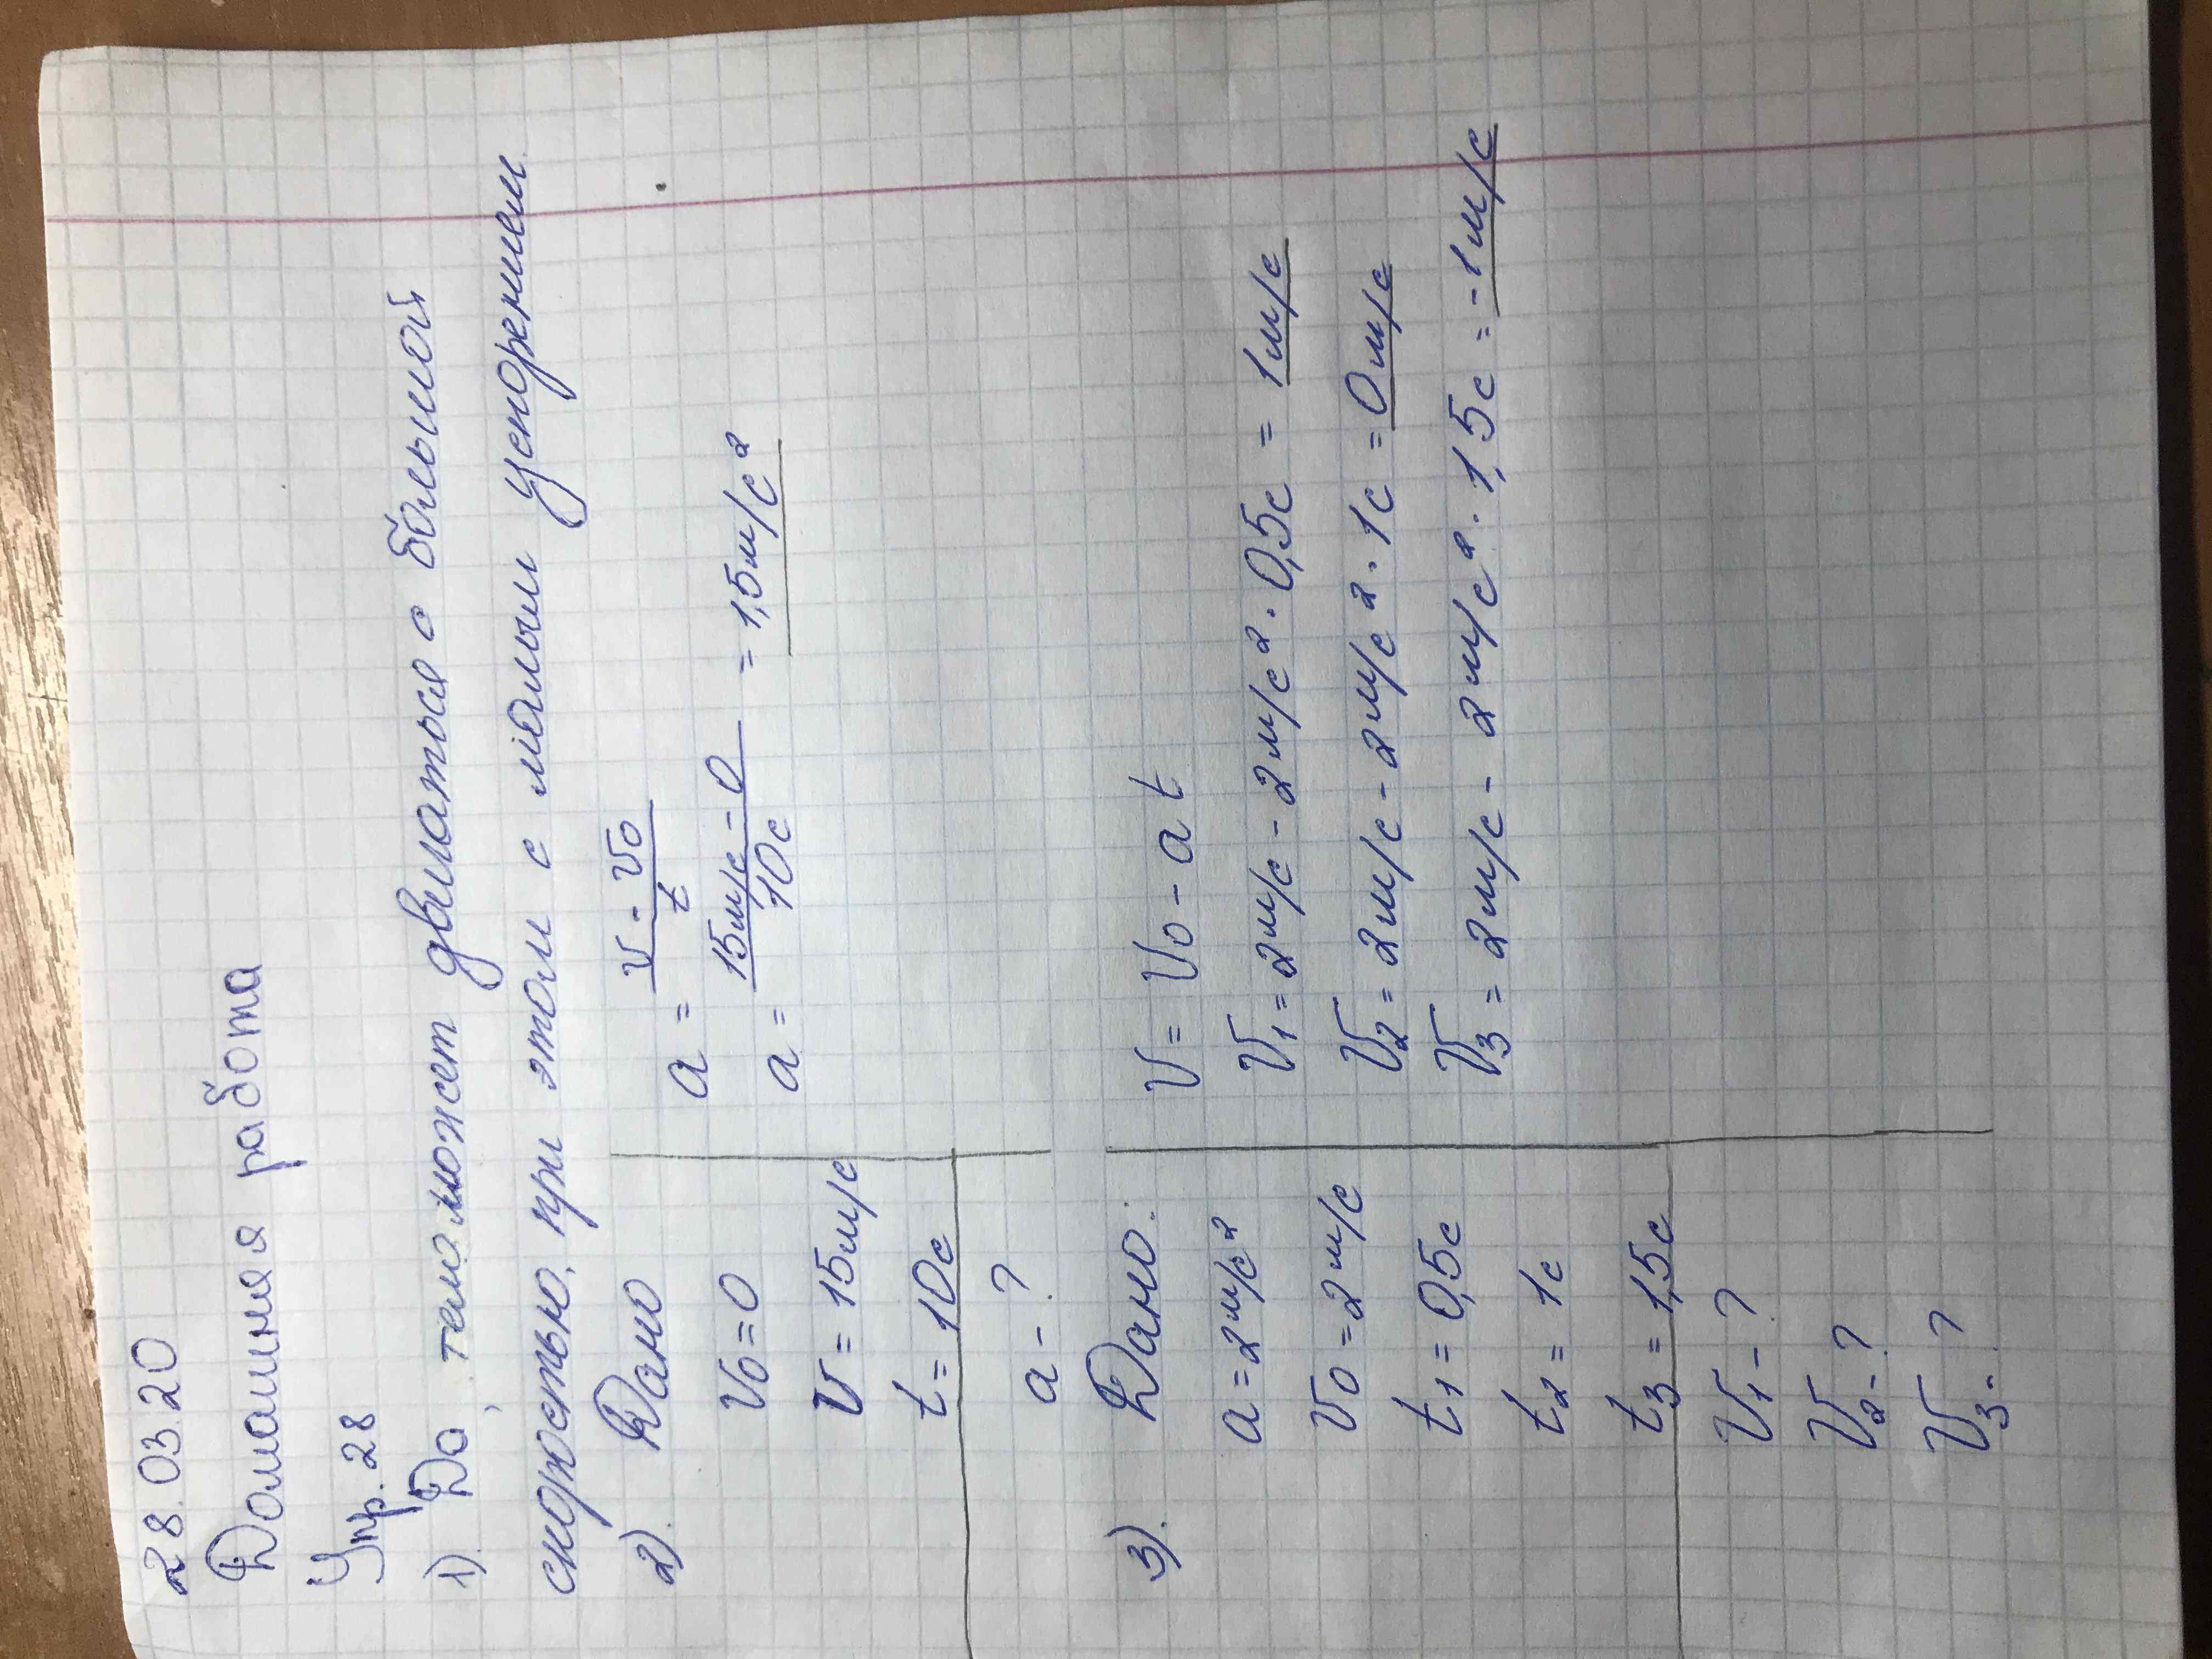 28.03.20
Домашняя работа
Упр. 28
1). Да, тело может двигаться с большой
скоростью, при этом с малым ускорением.
2). Дано
V₀ = 0
V = 15 м/с
t = 10 с
a - ?
a = (V - V₀) / t
a = (15 м/с - 0) / 10 с = 1,5 м/с²
3). Дано:
a = 2 м/с²
V₀ = 2 м/с
t₁ = 0,5 с
t₂ = 1 с
t₃ = 1,5 с
V₁ - ?
V₂ - ?
V₃ - ?
V = V₀ - a t
V₁ = 2 м/с - 2 м/с² · 0,5 с = 1 м/с
V₂ = 2 м/с - 2 м/с² · 1 с = 0 м/с
V₃ = 2 м/с - 2 м/с² · 1,5 с = -1 м/с